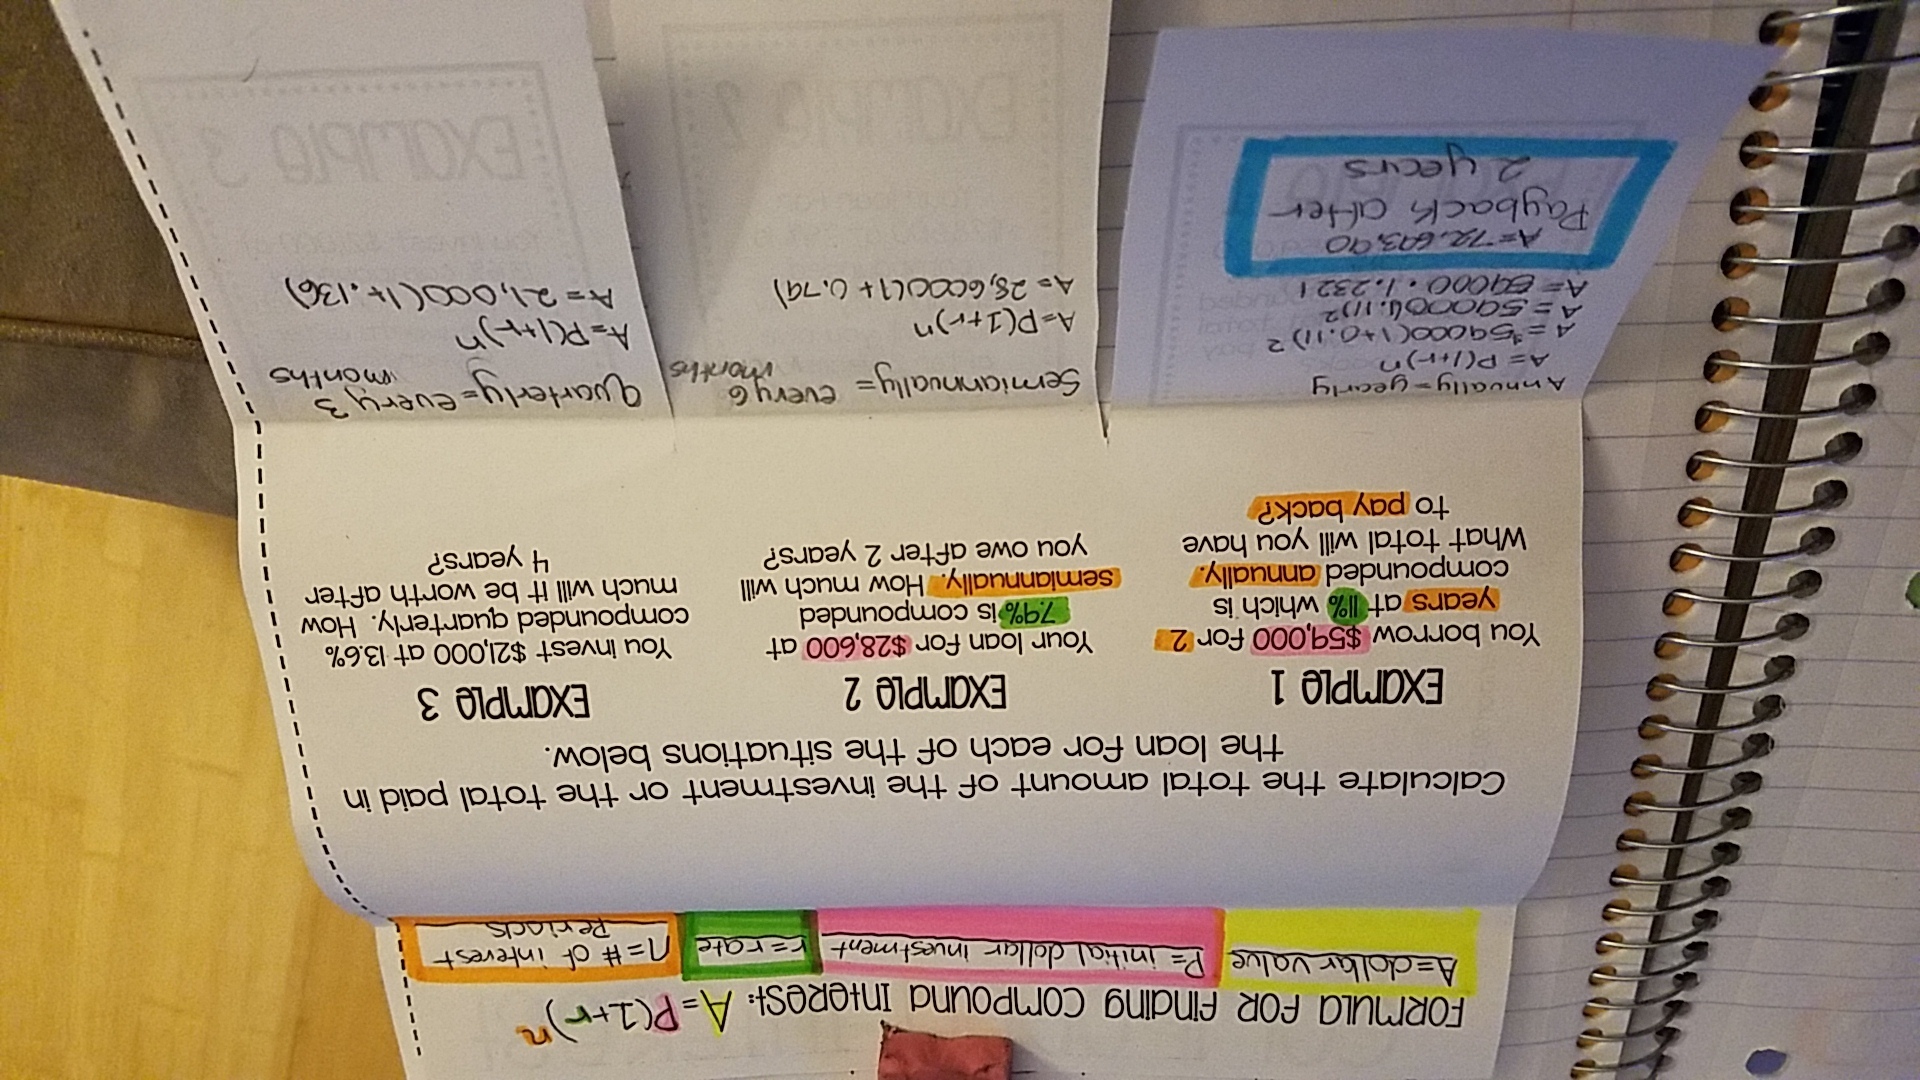 Formula for Finding Compound Interest: A=P(1+r)ⁿ
A=dollar value
P= initial dollar investment
r=rate
n= # of interest
Periods
Calculate the total amount of the investment or the total paid in
the loan for each of the situations below.
Example 1
You borrow $59,000 for 2
years at 11% which is
compounded annually.
What total will you have
to pay back?
Example 2
Your loan for $28,600 at
7.9% is compounded
semiannually. How much will
you owe after 2 years?
Example 3
You invest $21,000 at 13.6%
compounded quarterly. How
much will it be worth after
4 years?
Annually=yearly
A=P(1+r)ⁿ
A=$59000(1+0.11)²
A=59000(1.11)²
A=59000·1.2321
A=72,693.90
Payback after
2 years
Semiannually= every 6
months
A=P(1+r)ⁿ
A=28,6000(1+0.79)
Quarterly=every 3
months
A=P(1+r)ⁿ
A=21,000(1+.136)